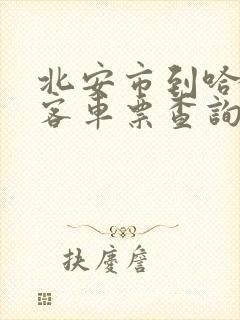 北安市到哈
客車票查詢
扶慶詹